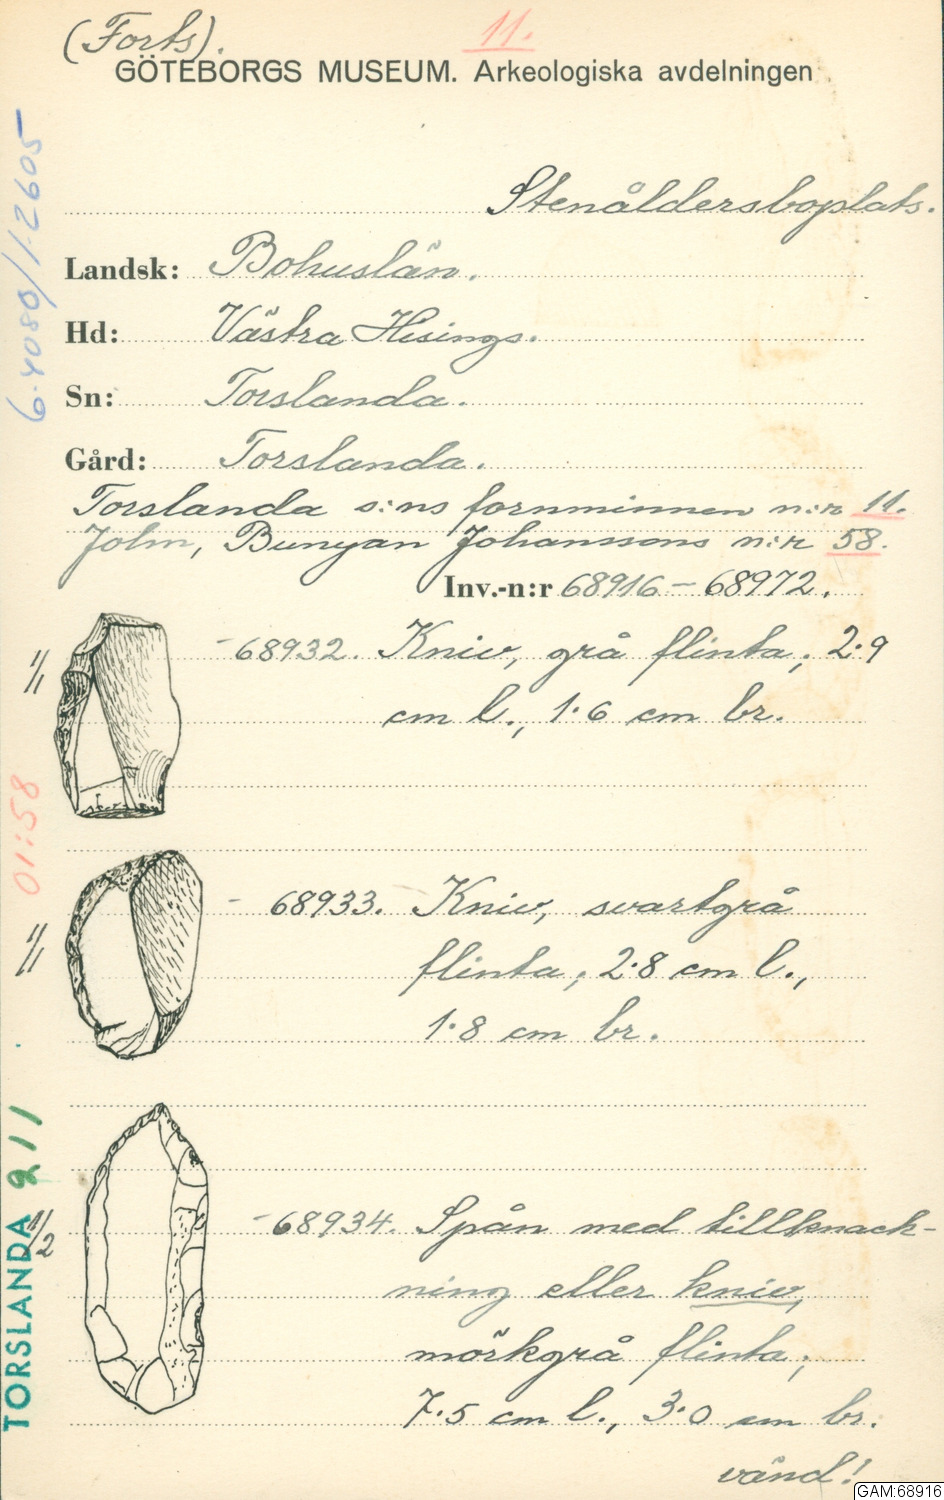 (Forts).
11.
GÖTEBORGS MUSEUM. Arkeologiska avdelningen
Stenåldersboplats.
Landsk: Bohuslän.
Hd: Västra Hisings.
Sn: Torslanda.
Gård: Torslanda.
Torslanda s:ns fornminnen n:r 11.
John, Bunyan Johanssons n:r 58.
Inv.-n:r 68916 – 68972.
1/1
- 68932. Kniv, grå flinta; 2·9
cm l., 1·6 cm br.
1/1
- 68933. Kniv, svartgrå
flinta; 2·8 cm l.,
1·8 cm br.
1/2
- 68934. Spån med tillknack-
ning eller kniv,
mörkgrå flinta;
7·5 cm l., 3·0 cm br.
vänd!
6·4080/1-2605
01:58
TORSLANDA 211
GAM:68916